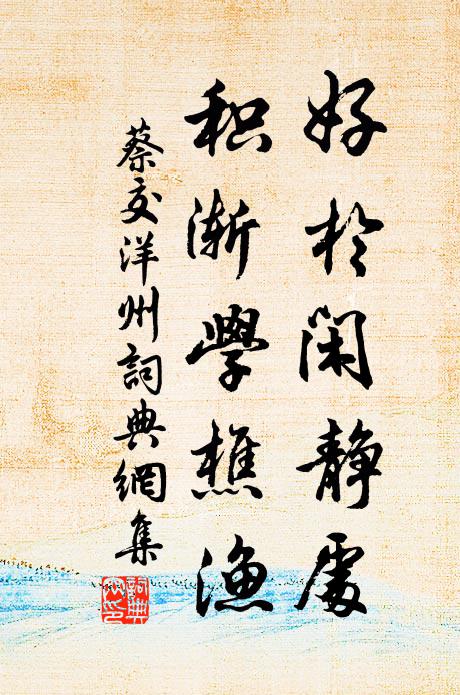 好於閑靜處
积漸學樵漁
蔡交洋州詞典網集